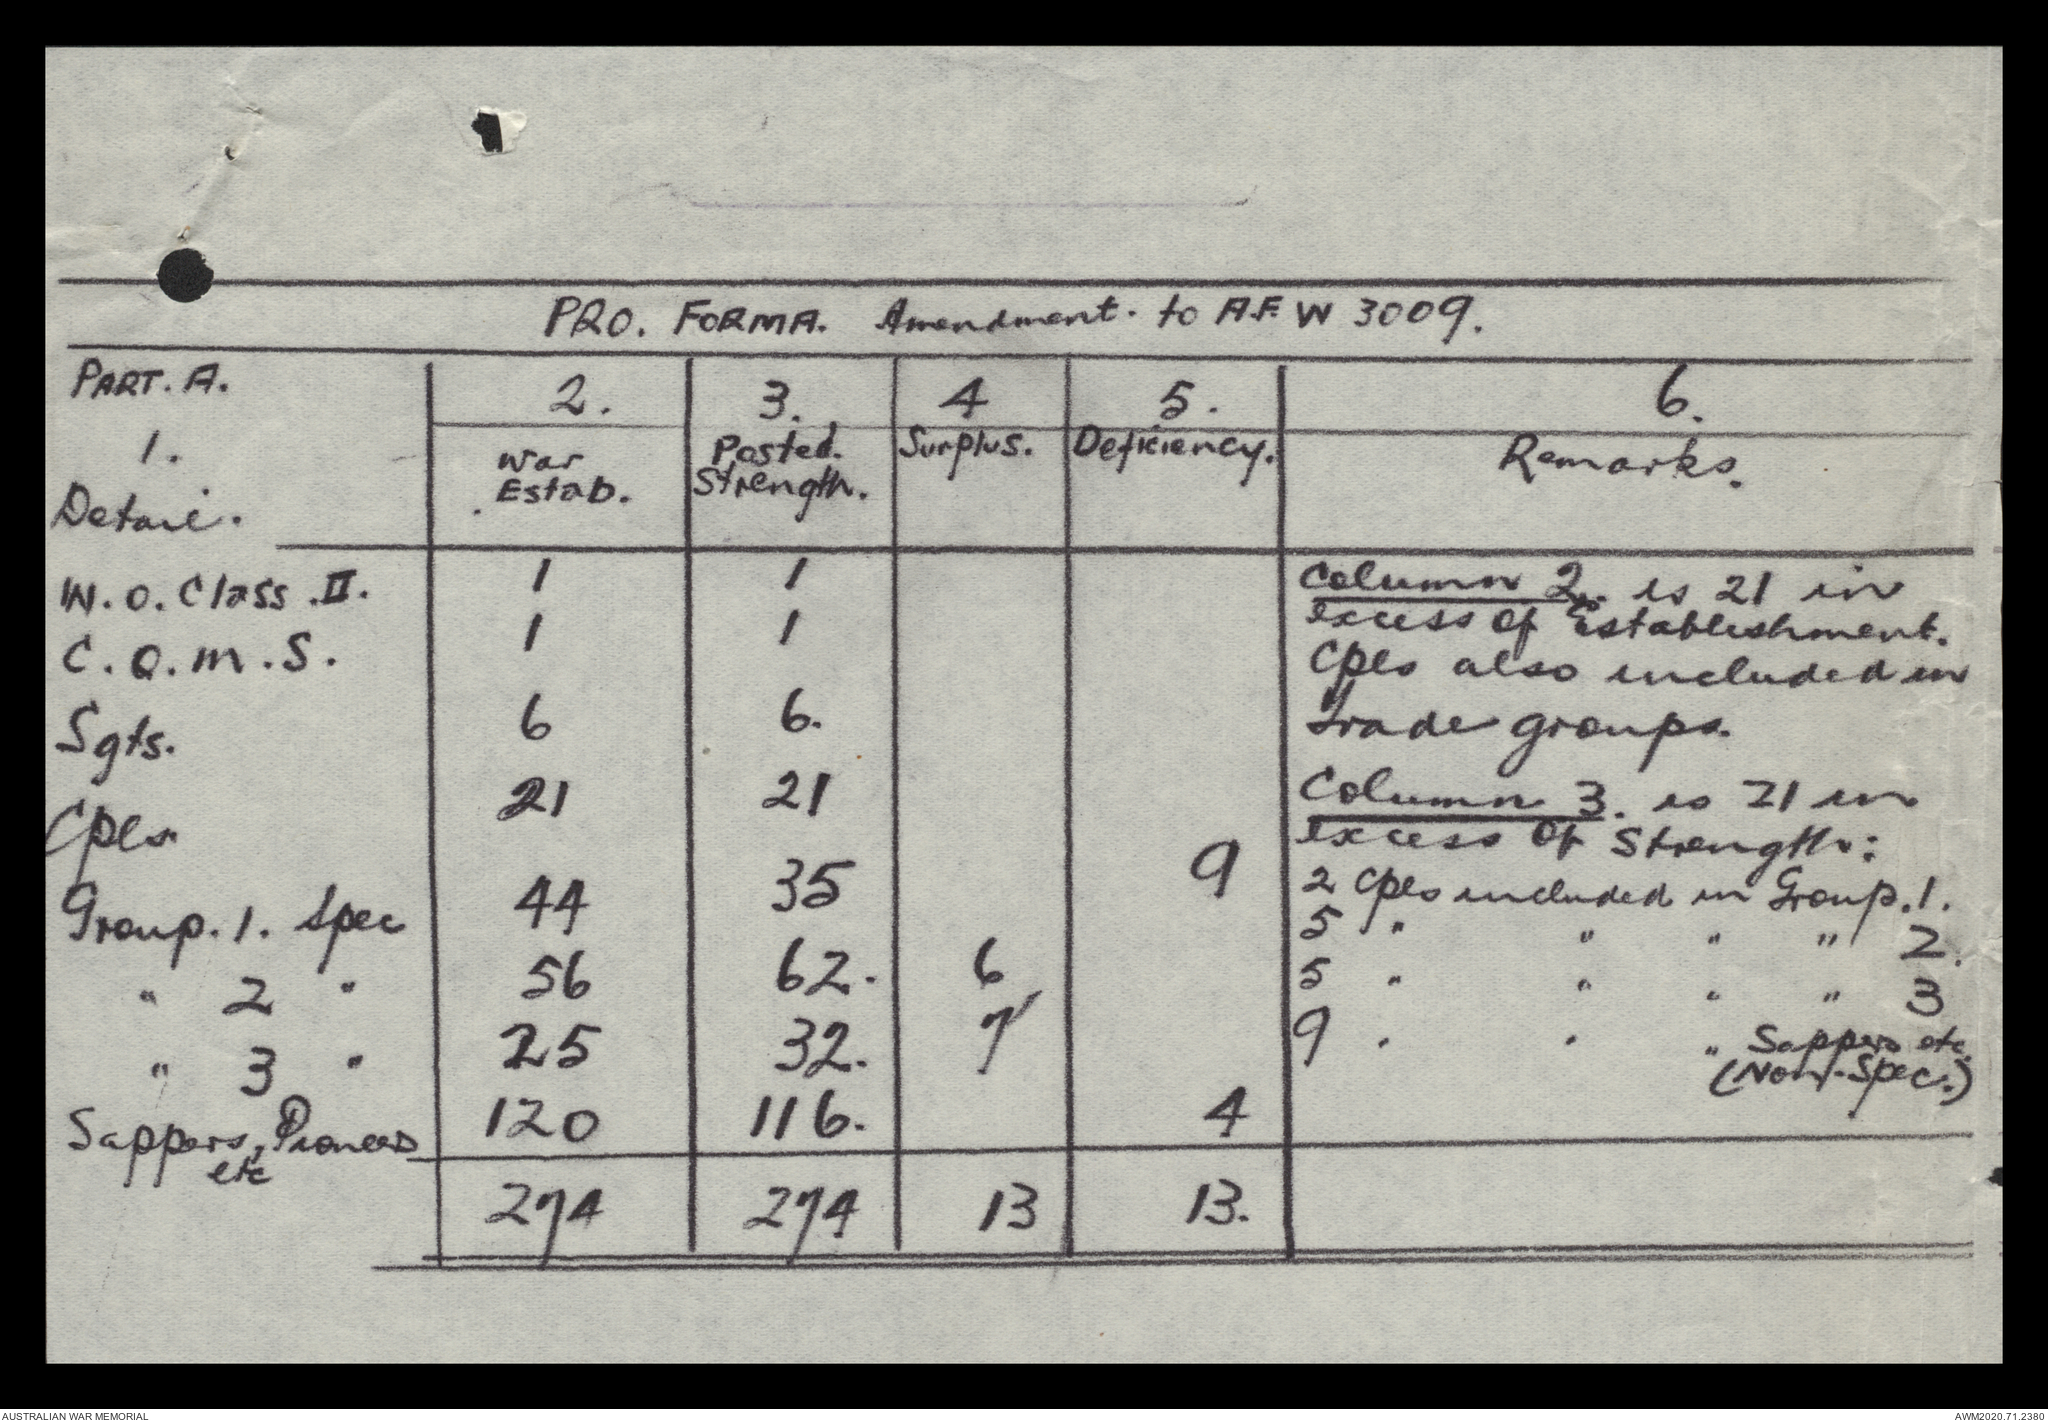 PRO. FORMA. Amendment. to A.F. W 3009.
PART. A.
1.
Detail.
2.
War
Estab.
3.
Posted.
Strength.
4
Surplus.
5.
Deficiency.
6.
Remarks.
W.O. Class .II. 1 1
C.Q.M.S. 1 1
Sgts. 6 6.
Cpls 21 21
Group. 1. Spec 44 35 9
" 2 " 56 62. 6
" 3 " 25 32. 7
Sappers, Pioneers 120 116. 4
etc
274 274 13 13.
Column 2. is 21 in
excess of Establishment.
Cpls also included in
trade groups.
Column 3. is 21 in
excess of Strength:
2 Cpls included in Group. 1.
5 " " " " 2.
5 " " " " 3
9 " " " Sappers etc.
(Non-Spec.)
AUSTRALIAN WAR MEMORIAL
AWM2020.71.2380